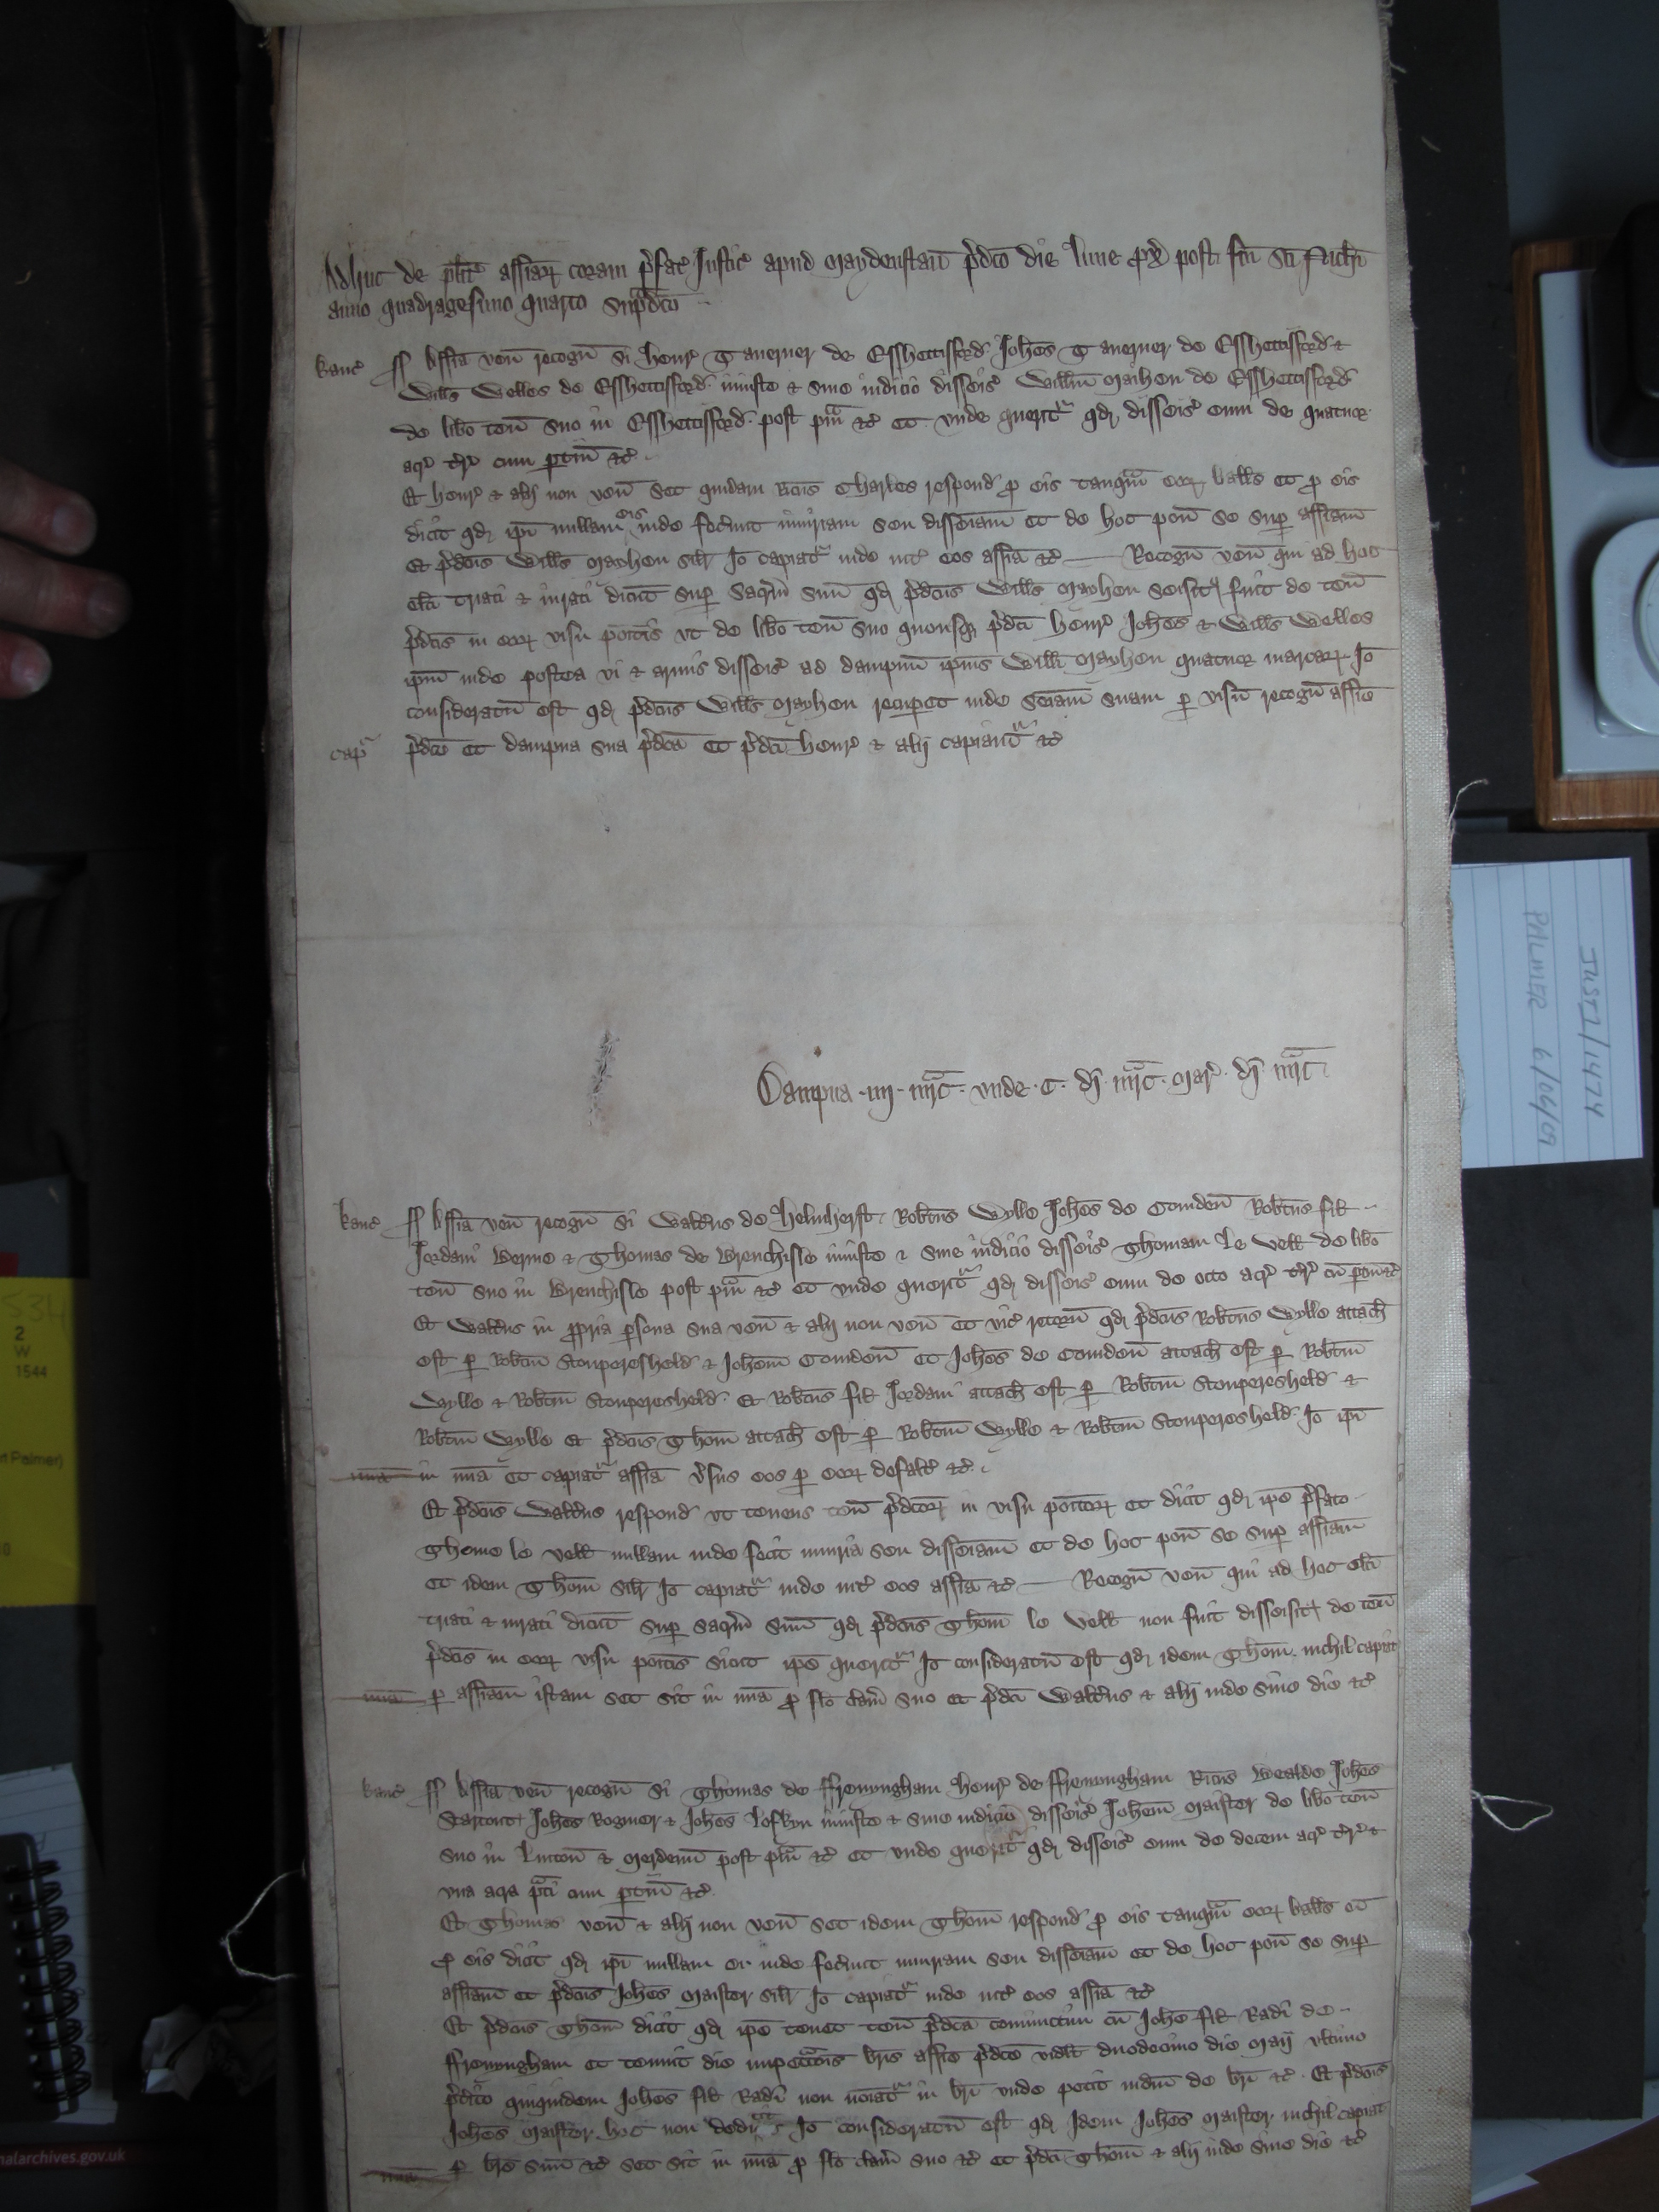 Adhuc de pl̄itis assiaꝝ coram p̄fat Justic̄ apud Maydenstan p̄dc̄o die lune ꝓx post fm̄ Sc̄i
anno quadragesimo quarto sup̄dc̄o
kanc̄ ſſ Assīa ven̄ recogn̄ si Henr̄ Tauerner de Esshettisford Joh̄es Tauerner de Esshettisford &
Will̄s Welles de Esshettisford iniuste & sine iudicio disseis̄ Will̄m Mayheu de Esshettisford
de lib̄o ten̄ suo in Esshettisford post p̄m̄ &c̄ et vnde querit᷑ qd disseis̄ eum de quatuor
acr̄ t̄r̄ cum ꝑtin̄ &c̄
Et Henr̄ & alij non ven̄ Set quidam Ric̄us Charles respond ꝓ eis tanqͣm eoꝝ ball̄s et ꝓ eis
dicit qd ip̄i nullam eis inde fec̄unt iniuriam seu disseīam et de hoc pon̄ se suꝑ assīam
Et p̄dc̄us Will̄s Mayheu sil̄r Jo capiat᷑ inde int̄ eos assīa &c̄ — Recogn̄ ven̄ qui ad hoc
el̄ci triati & iurati dicūt suꝑ sacr̄m suū qd p̄dc̄us Will̄s Mayheu seisit fuit de ten̄
p̄dc̄is in eoꝝ visu po̅itis vt de lib̄o ten̄ suo quousqꝫ p̄dc̄i Henr̄ Joh̄es & Will̄s Welles
ip̄m inde postea vi & armis disseis̄ ad dampnū ip̄ius Will̄i Mayheu quatuor marcaꝝ Jo
consideratū est qd p̄dc̄us Will̄s Mayheu recuꝑet inde sēiam suam ꝑ visū recogn̄ assīe
cap᷑ p̄dc̄e et dampna sua p̄dc̄a et p̄dc̄i Henr̄ & alij capiant᷑ &c̄
Dampna iiij mͬc̄ vnde C di mͬc̄ Mar̄ di mͬc̄
kanc̄ ſſ Assīa ven̄ recogn̄ si Walt̄us de Helmherst Rob̄tus Wylle Joh̄es de Comden̄ Rob̄tus fil̄
Jordani Berme & Thomas de Brenchisle iniuste & sine iudicio disseis̄ Thomam le Vell̄ de lib̄o
ten̄ suo in Brenchisle post p̄m̄ &c̄ et vnde querit᷑ qd disseis̄ eum de octo acr̄ t̄r̄ cū ꝑtin̄ &c̄
Et Walt̄us in ꝓpria ꝑsona sua ven̄ & alij non ven̄ et vic̄ retorn̄ qd p̄dc̄us Rob̄tus Wylle attach̄
est ꝑ Rob̄tm Stonperesheld & Joh̄em Comden̄ et Joh̄es de Comden̄ attach̄ est ꝑ Rob̄tm
Wylle & Rob̄tm Stonperesheld Et Rob̄tus fil̄ Jordani attach̄ est ꝑ Rob̄tm Stonperesheld &
Rob̄tm Wylle et p̄dc̄us Thom̄ attach̄ est ꝑ Rob̄tm Wylle & Rob̄tm Stonperesheld Jo ip̄i
mīa in mīa et capiat᷑ assīa v̄sus eos ꝑ eoꝝ defalt̄ &c̄
Et p̄dc̄us Walt̄us respond vt tenens ten̄ p̄dc̄oꝝ in visu po̅itoꝝ et dicit qd ip̄e p̄fato
Thome le Vell̄ nullam inde fecit iniuriā seu disseīam et de hoc pon̄ se suꝑ assīam
et idem Thom̄ sil̄r Jo capiat᷑ inde int̄ eos assīa &c̄ — Recogn̄ ven̄ qui ad hoc el̄ci
triati & iurati dicūt suꝑ sacr̄m suū qd p̄dc̄us Thom̄ le Vell̄ non fuit disseisit de ten̄
p̄dc̄is in eoꝝ visu po̅itis sicut ip̄e querit᷑ Jo consideratū est qd idem Thom̄ nichil capiat
mīa ꝑ assīam istam set sit in mīa ꝓ fl̄o clam̄ suo et p̄dc̄i Walt̄us & alij inde sine die &c̄
kanc̄ ſſ Assīa ven̄ recogn̄ si Thomas de Ffremyngham Henr̄ de Ffremyngham Ric̄us Wealde Joh̄es
Joh̄es Rogmer & Joh̄es Lefkyn iniuste & sine iudicio disseis̄ Joh̄em Maister de lib̄o ten̄
suo in Linton̄ & Merdenn̄ post p̄m̄ &c̄ et vnde querit᷑ qd disseis̄ eum de decem acr̄ t̄r̄ &
vna acra p̄ti cum ꝑtin̄ &c̄
Et Thomas ven̄ & alij non ven̄ set idem Thom̄ respond ꝓ eis tanqͣm eoꝝ ball̄s et
ꝓ eis dicit qd ip̄i nullam ei inde fec̄unt iniuriam seu disseīam et de hoc pon̄ se suꝑ
assīam et p̄dc̄us Joh̄es Maister sil̄r Jo capiat᷑ inde int̄ eos assīa &c̄
Et p̄dc̄us Thom̄ dicit qd ip̄e tenet ten̄ p̄dc̄a coniunctim cū Joh̄e fil̄ Rad̄i de
Ffremyngham et tenuit die impet̄c̄ois br̄is assīe p̄dc̄e videl̄t duodecimo die Maij vltimo
p̄dito quiquidem Joh̄es fil̄ Rad̄i non noīat᷑ in br̄i vnde petit iudm̄ de br̄i &c̄ Et p̄dc̄us
Joh̄es Maister hoc non dedic̄ Jo consideratū est qd idem Joh̄es Maister nichil capiat
mīa ꝑ br̄e suū &c̄ set sit in mīa ꝓ fl̄o clam̄ suo &c̄ et p̄dc̄i Thom̄ & alij inde sine die &c̄
JUST1/1474
PALMER 6/06/09
534
2
W
1544
rt Palmer)
nalarchives.gov.uk